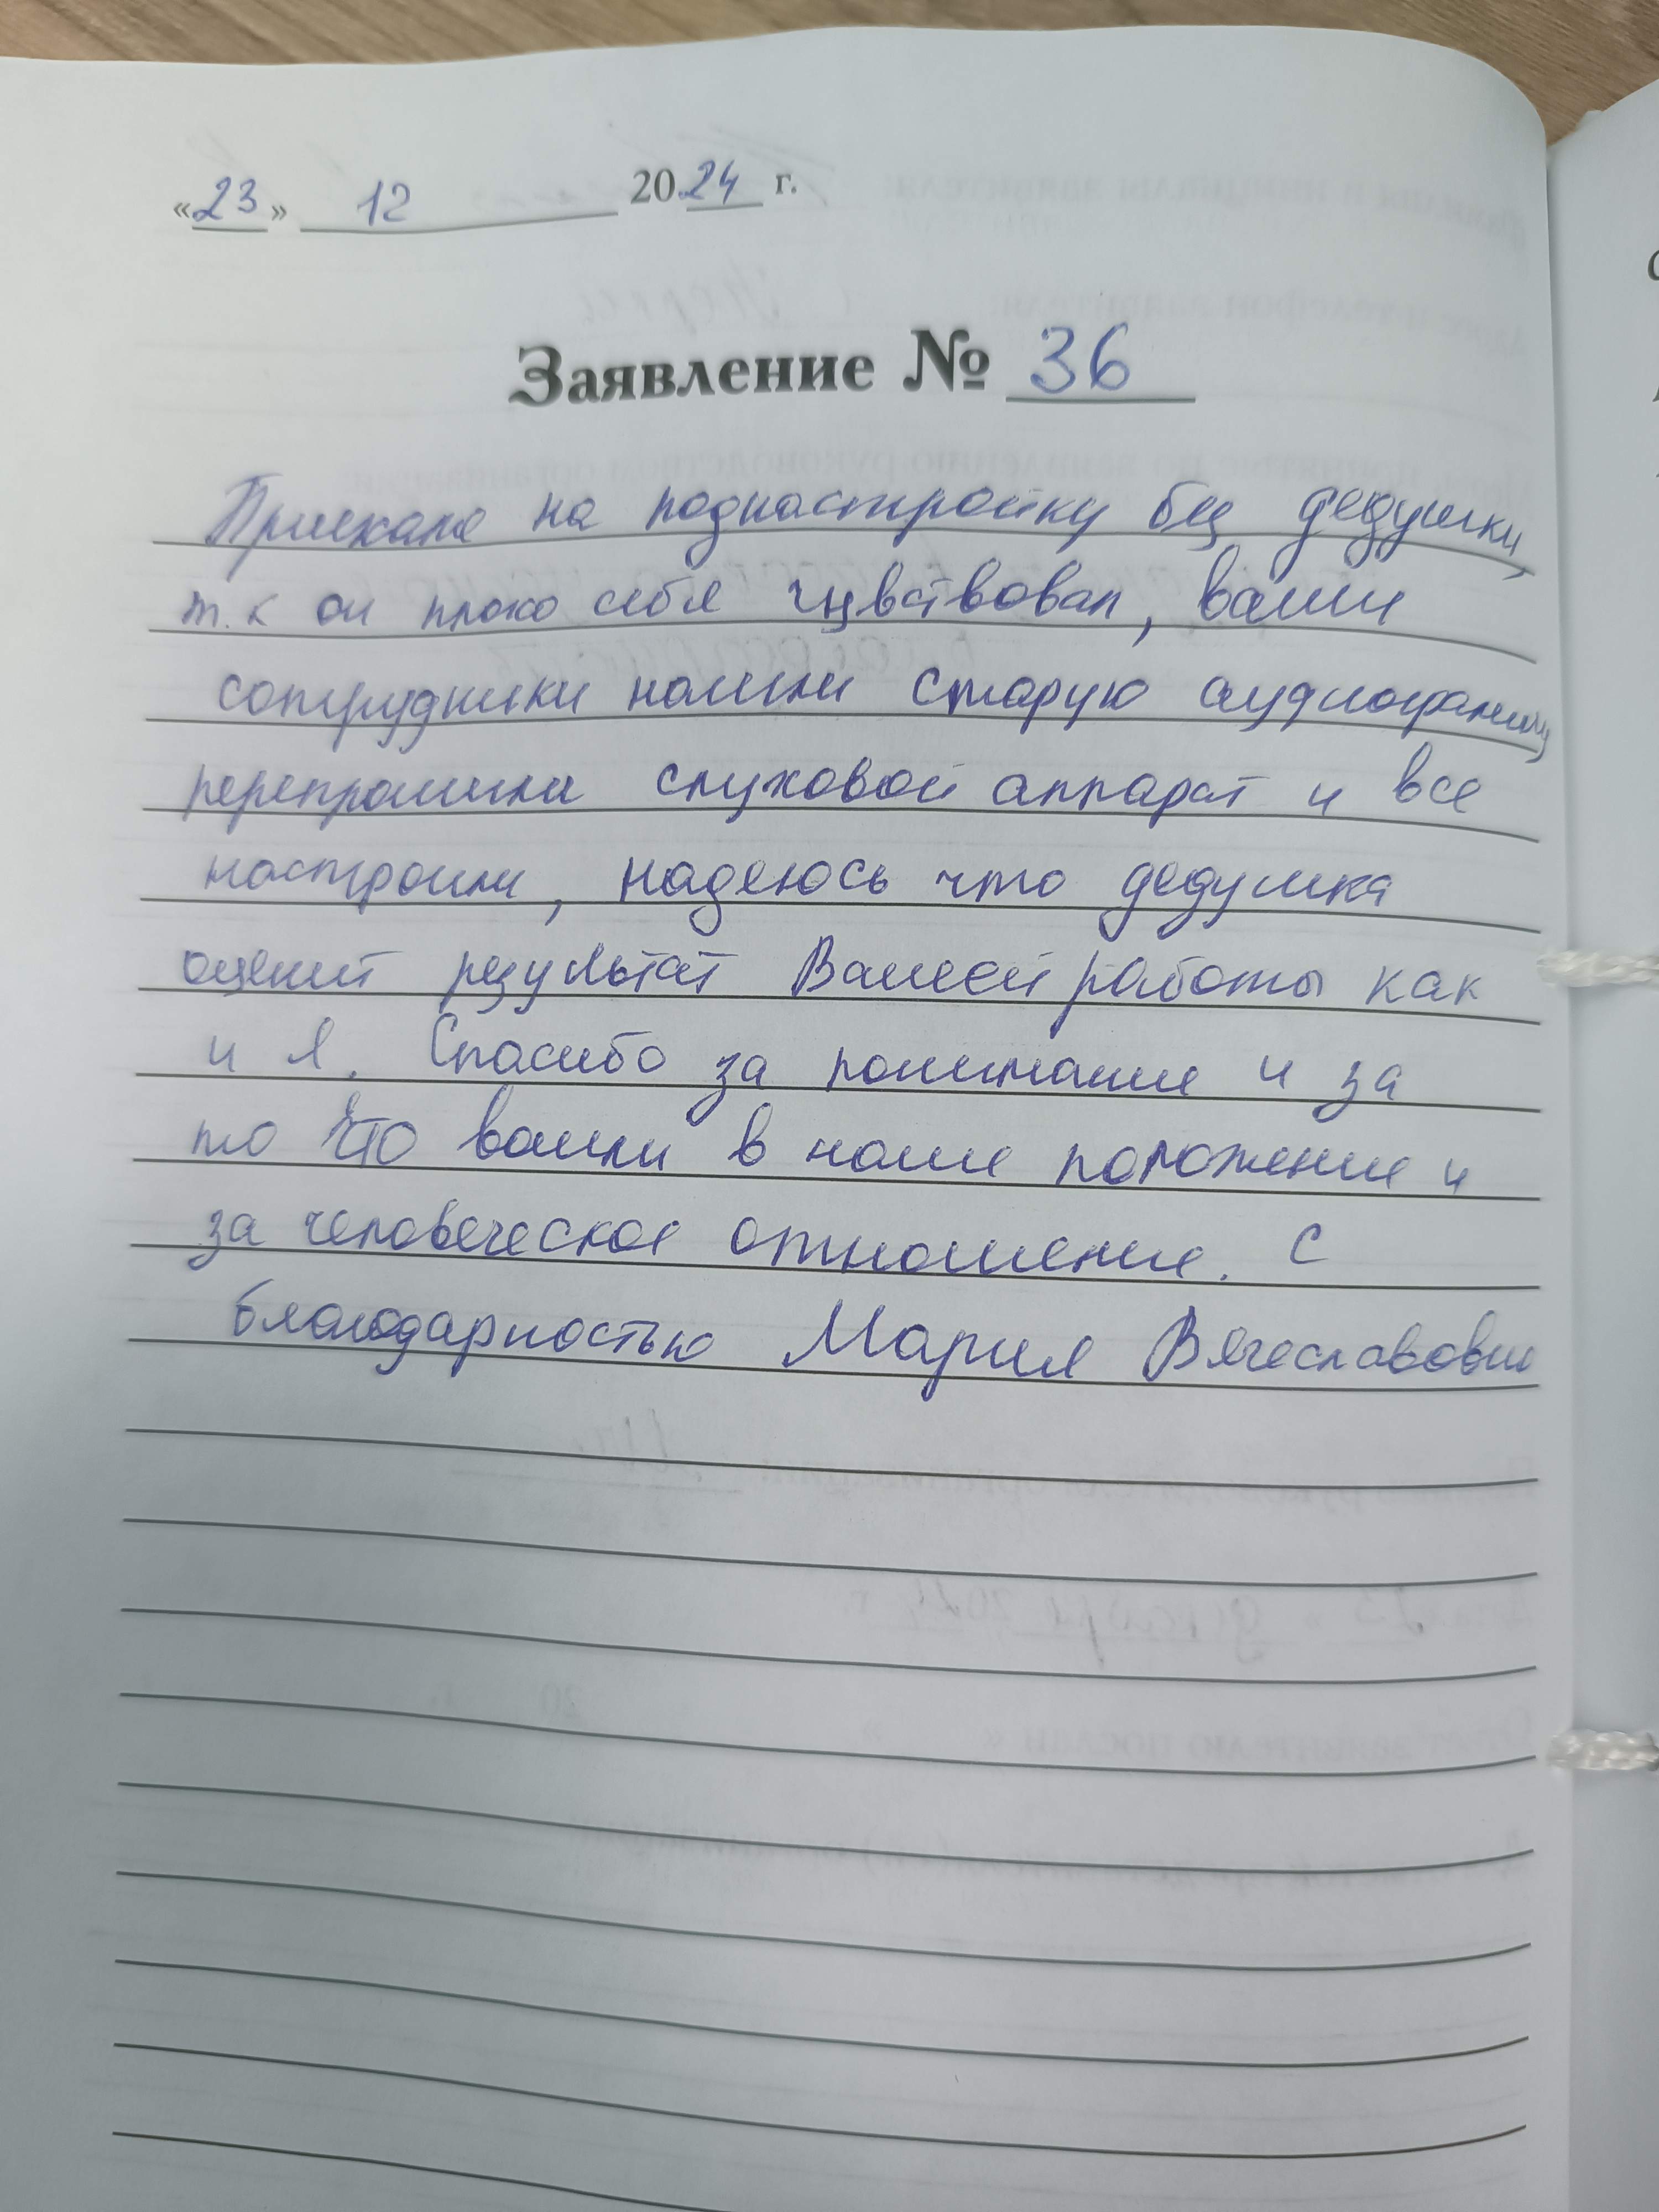 «23» 12 2024 г.
Заявление № 36
Приехала на поднастройку без дедушки,
т.к он плохо себя чувствовал, ваши
сотрудники нашли старую аудиограмму
перепрошили слуховой аппарат и все
настроили, надеюсь что дедушка
оценит результат Вашей работы как
и я. Спасибо за понимание и за
то что вошли в наше положение и
за человеческое отношение. С
благодарностью Мария Вячеславовна